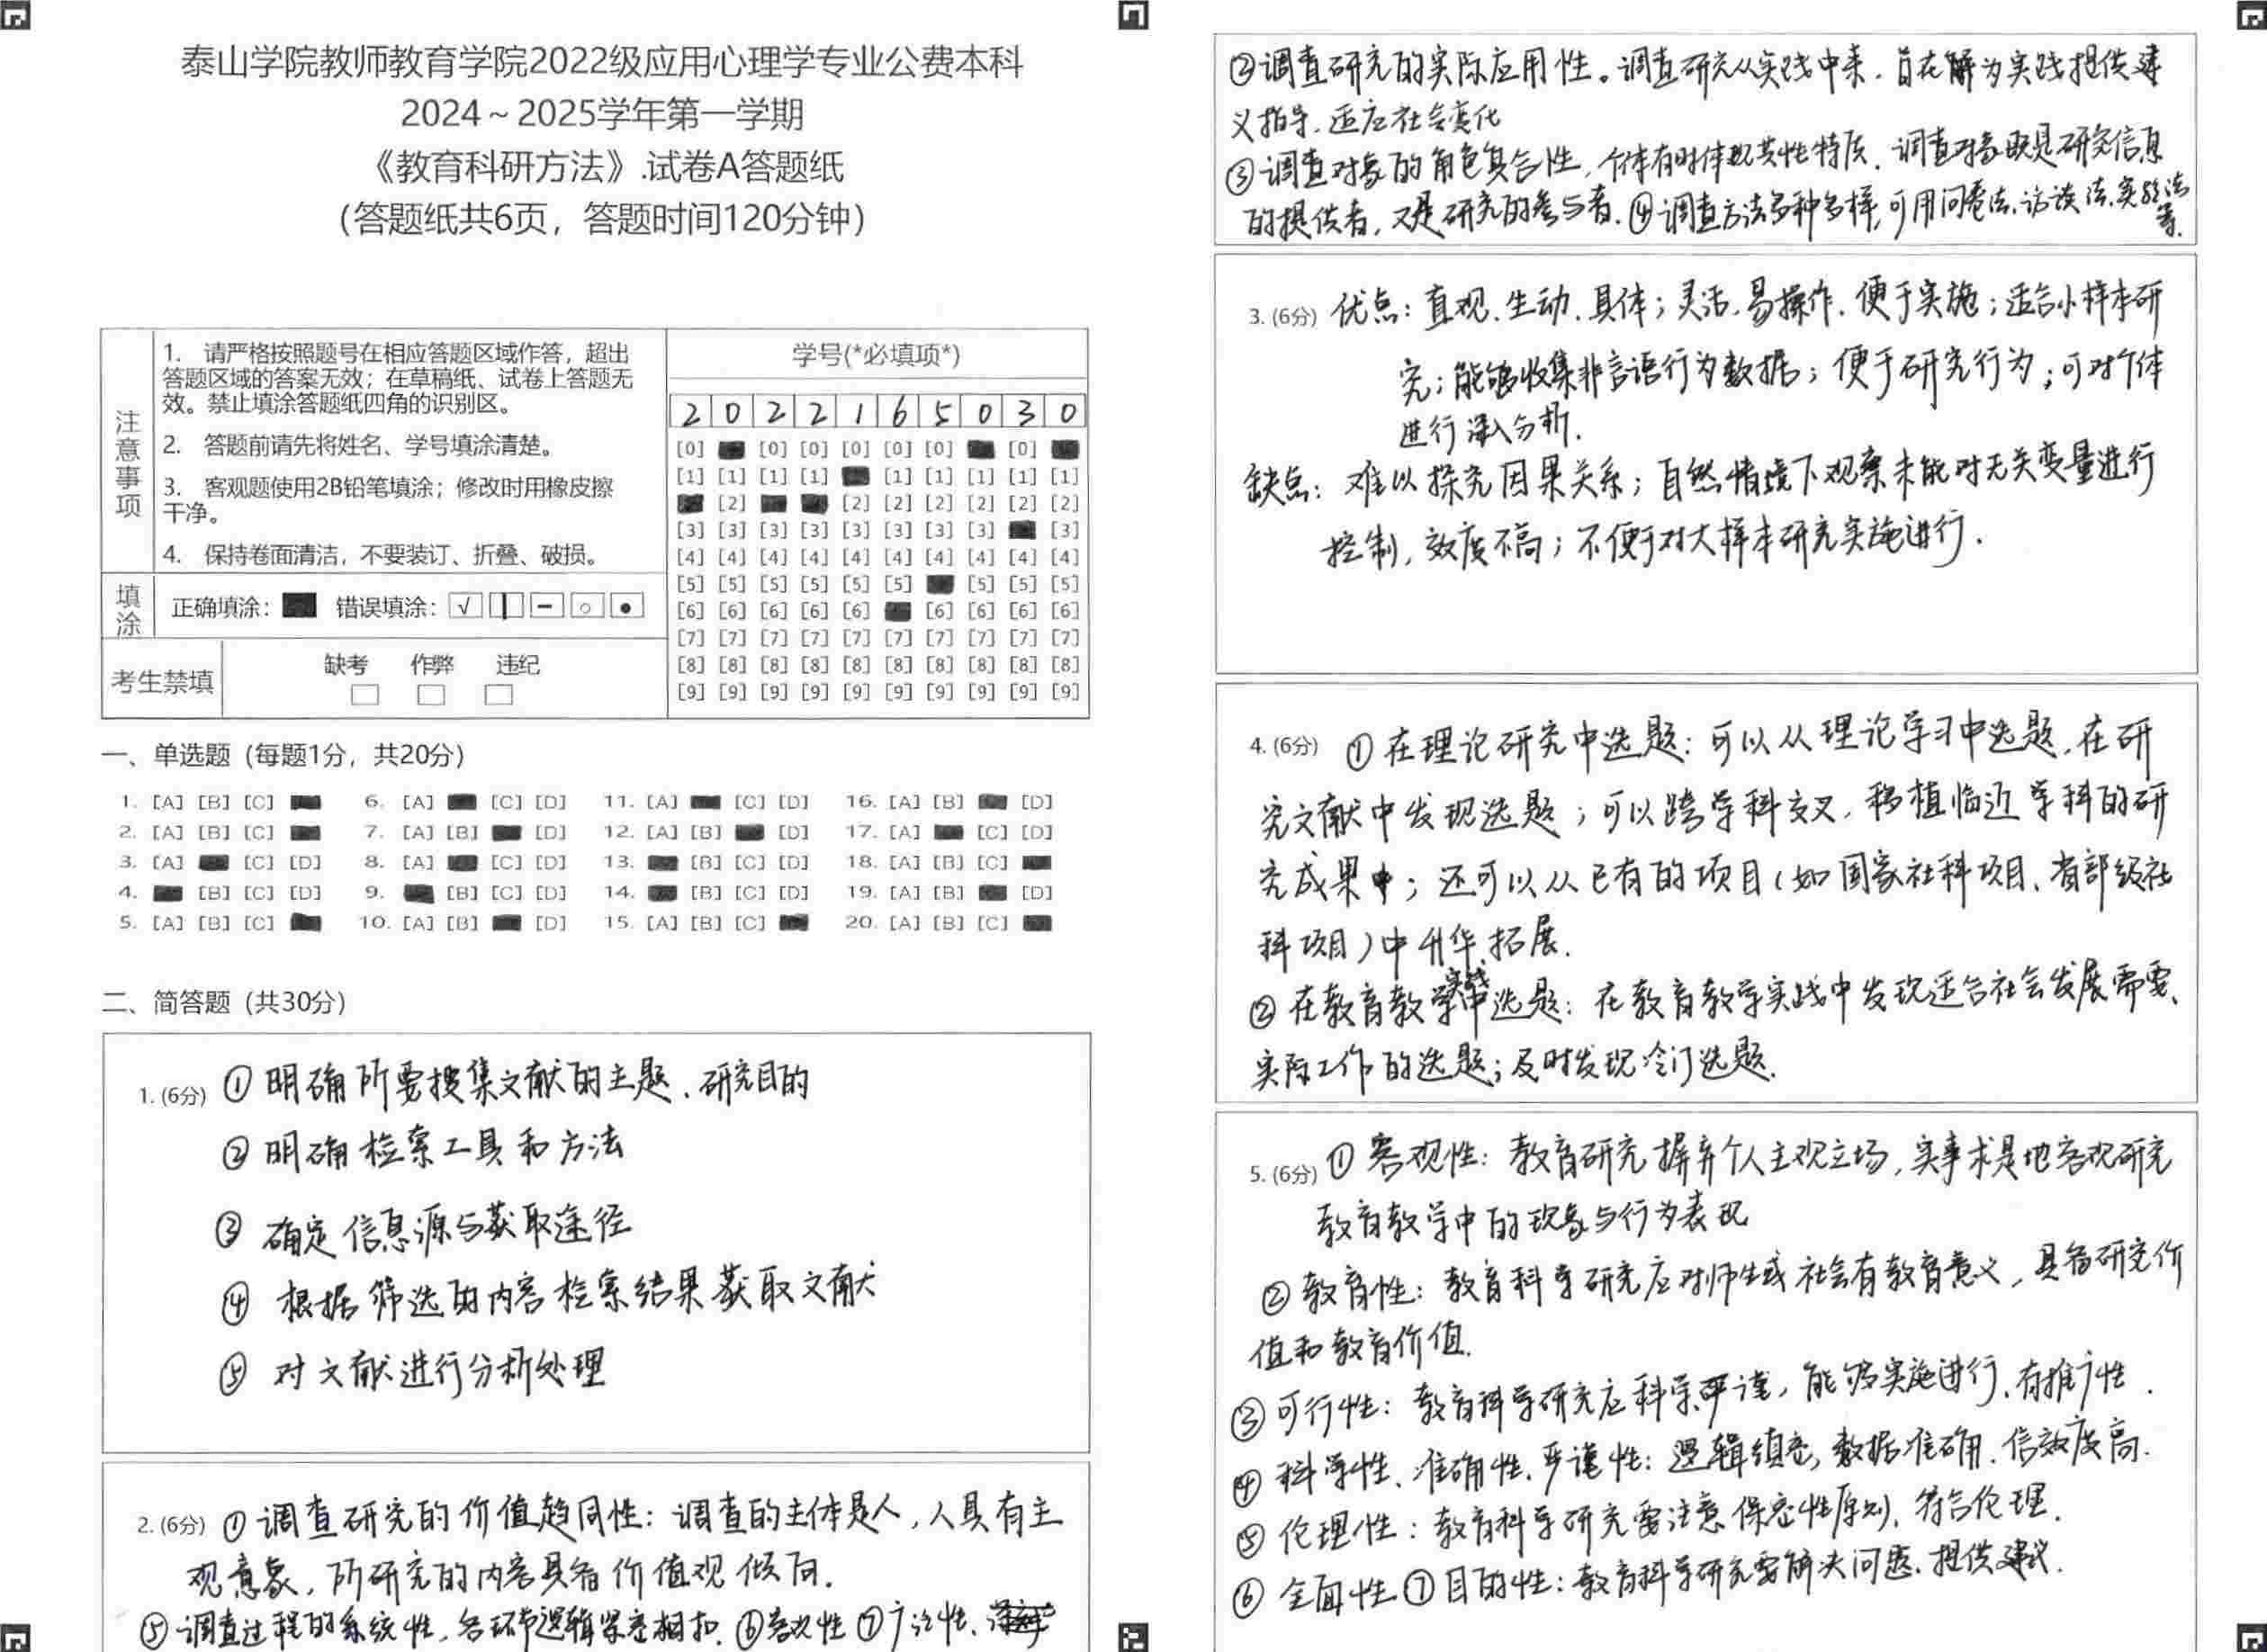 泰山学院教师教育学院2022级应用心理学专业公费本科
2024～2025学年第一学期
《教育科研方法》.试卷A答题纸
（答题纸共6页，答题时间120分钟）
注意事项
1. 请严格按照题号在相应答题区域作答，超出
答题区域的答案无效；在草稿纸、试卷上答题无
效。禁止填涂答题纸四角的识别区。
2. 答题前请先将姓名、学号填涂清楚。
3. 客观题使用2B铅笔填涂；修改时用橡皮擦
干净。
4. 保持卷面清洁，不要装订、折叠、破损。
填涂
正确填涂： 错误填涂：
考生禁填
缺考 作弊 违纪
学号(*必填项*)
2 0 2 2 1 6 5 0 3 0
[0] [0] [0] [0] [0] [0] [0]
[1] [1] [1] [1] [1] [1] [1] [1] [1]
[2] [2] [2] [2] [2] [2] [2]
[3] [3] [3] [3] [3] [3] [3] [3] [3]
[4] [4] [4] [4] [4] [4] [4] [4] [4] [4]
[5] [5] [5] [5] [5] [5] [5] [5] [5]
[6] [6] [6] [6] [6] [6] [6] [6] [6]
[7] [7] [7] [7] [7] [7] [7] [7] [7] [7]
[8] [8] [8] [8] [8] [8] [8] [8] [8] [8]
[9] [9] [9] [9] [9] [9] [9] [9] [9] [9]
一、单选题（每题1分，共20分）
1. [A] [B] [C] 6. [A] [C] [D] 11. [A] [C] [D] 16. [A] [B] [D]
2. [A] [B] [C] 7. [A] [B] [D] 12. [A] [B] [D] 17. [A] [C] [D]
3. [A] [C] [D] 8. [A] [C] [D] 13. [B] [C] [D] 18. [A] [B] [C]
4. [B] [C] [D] 9. [B] [C] [D] 14. [B] [C] [D] 19. [A] [B] [D]
5. [A] [B] [C] 10. [A] [B] [D] 15. [A] [B] [C] 20. [A] [B] [C]
二、简答题（共30分）
1. (6分) ①明确所要搜集文献的主题、研究目的
②明确检索工具和方法
③确定信息源与获取途径
④根据筛选的内容检索结果获取文献
⑤对文献进行分析处理
2. (6分) ①调查研究的价值趋同性：调查的主体是人，人具有主
观意象，所研究的内容具备价值观倾向.
⑤调查过程的系统性，各环节逻辑紧密相扣. ⑥客观性 ⑦广泛性、
②调查研究的实际应用性。调查研究从实践中来，旨在解为实践提供建
义指导、适应社会变化
③调查对象的角色复合性，个体有时体现共性特质，调查对象既是研究信息
的提供者，又是研究的参与者. ④调查方法多种多样，可用问卷法、访谈法、实验法
等.
3. (6分) 优点：直观、生动、具体；灵活、易操作、便于实施；适合小样本研
究；能够收集非言语行为数据；便于研究行为；可对个体
进行深入分析.
缺点：难以探究因果关系；自然情境下观察未能对无关变量进行
控制，效度不高；不便于对大样本研究实施进行.
4. (6分) ①在理论研究中选题：可以从理论学习中选题，在研
究文献中发现选题；可以跨学科交叉，移植临近学科的研
究成果中；还可以从已有的项目（如国家社科项目、省部级社
科项目）中升华、拓展.
②在教育教学实践中选题：在教育教学实践中发现适合社会发展需要、
实际工作的选题；及时发现冷门选题.
5. (6分) ①客观性：教育研究摒弃个人主观立场，实事求是地客观研究
教育教学中的现象与行为表现
②教育性：教育科学研究应对师生或社会有教育意义，具备研究价
值和教育价值.
③可行性：教育科学研究应科学严谨，能够实施进行、有推广性.
④科学性、准确性、严谨性：逻辑缜密，数据准确、信效度高.
⑤伦理性：教育科学研究要注意保密性原则，符合伦理.
⑥全面性 ⑦目的性：教育科学研究要解决问题、提供建议.